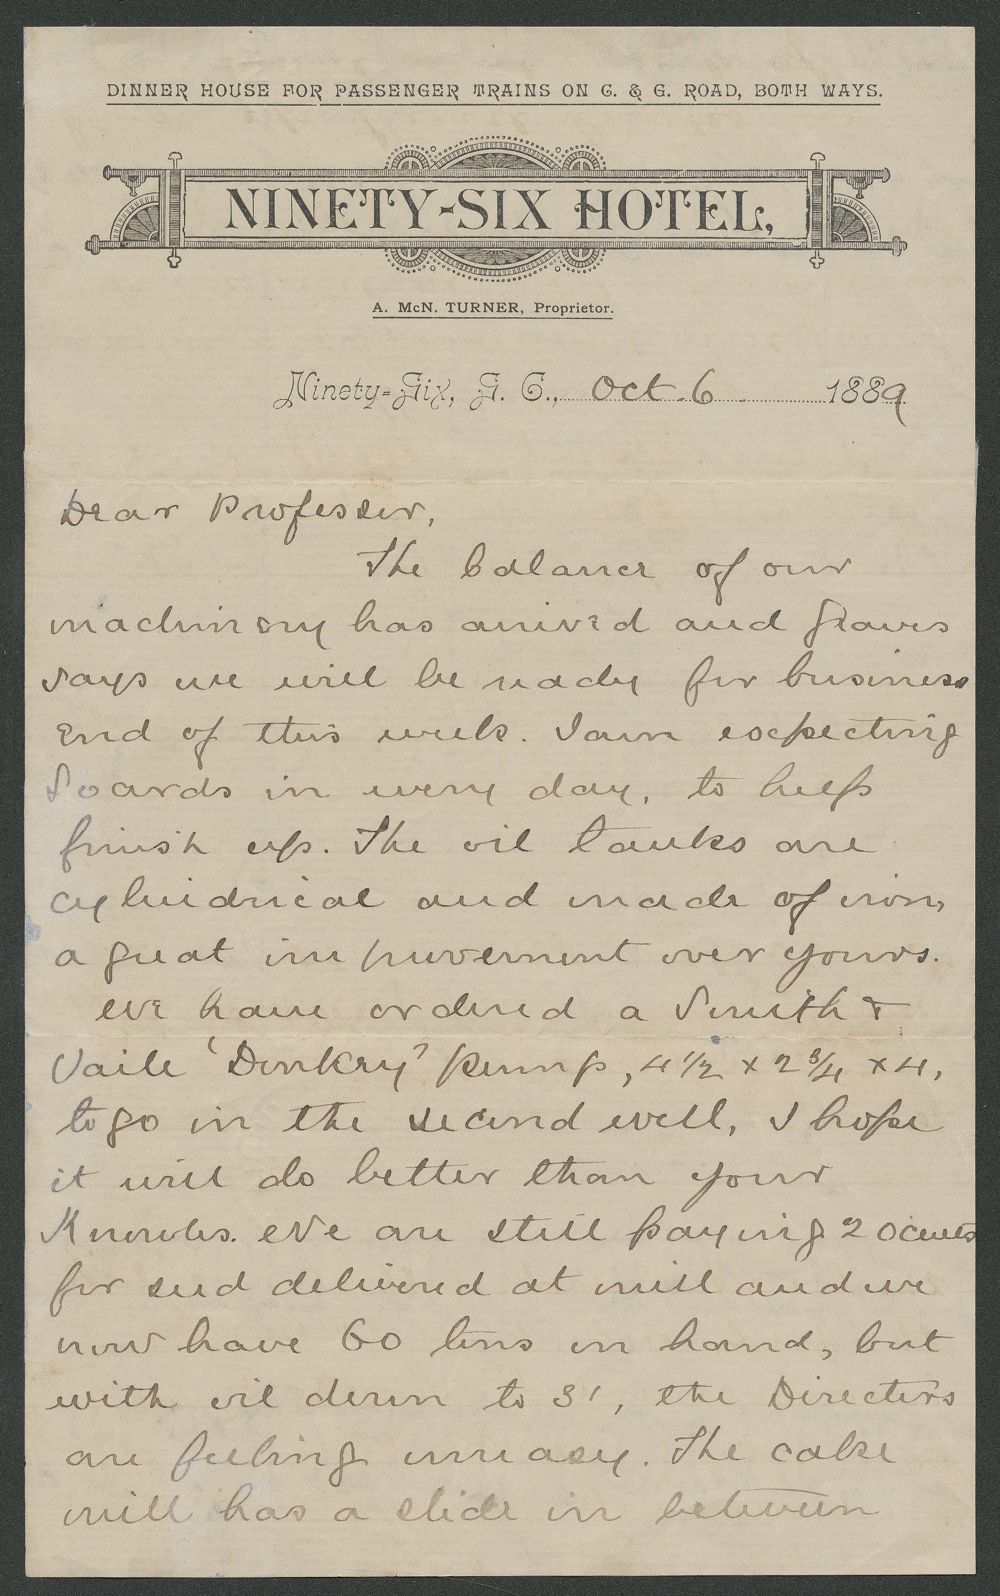 DINNER HOUSE FOR PASSENGER TRAINS ON C. & G. ROAD, BOTH WAYS.
NINETY-SIX HOTEL,
A. McN. TURNER, Proprietor.
Ninety-Six, S. C., Oct. 6 1889
Dear Professor,
The balance of our
machinery has arrived and Graves
says we will be ready for business
End of this week. I am expecting
boards in every day, to help
finish up. The oil tanks are
cylindrical and made of iron,
a great improvement over yours.
We have ordered a Smith &
Vaile 'Donkey' pump, 4 1/2 x 2 3/4 x 4,
to go in the second well, I hope
it will do better than your
Knowles. We are still paying 20 cents
for seed delivered at mill and we
now have 60 tons on hand, but
with oil down to 31, the Directors
are feeling uneasy. The cake
mill has a slide in between